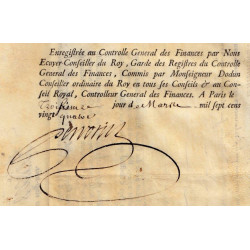 Enregistrée au Controlle General des Finances par Nous
Ecuyer Conseiller du Roy, Garde des Registres du Controlle
General des Finances, Commis par Monseigneur Dodun
Conseiller ordinaire du Roy en tous ses Conseils & au Con-
seil Royal, Controlleur General des Finances. A Paris le
Troisieme jour de Mars mil sept cens
vingt quatre